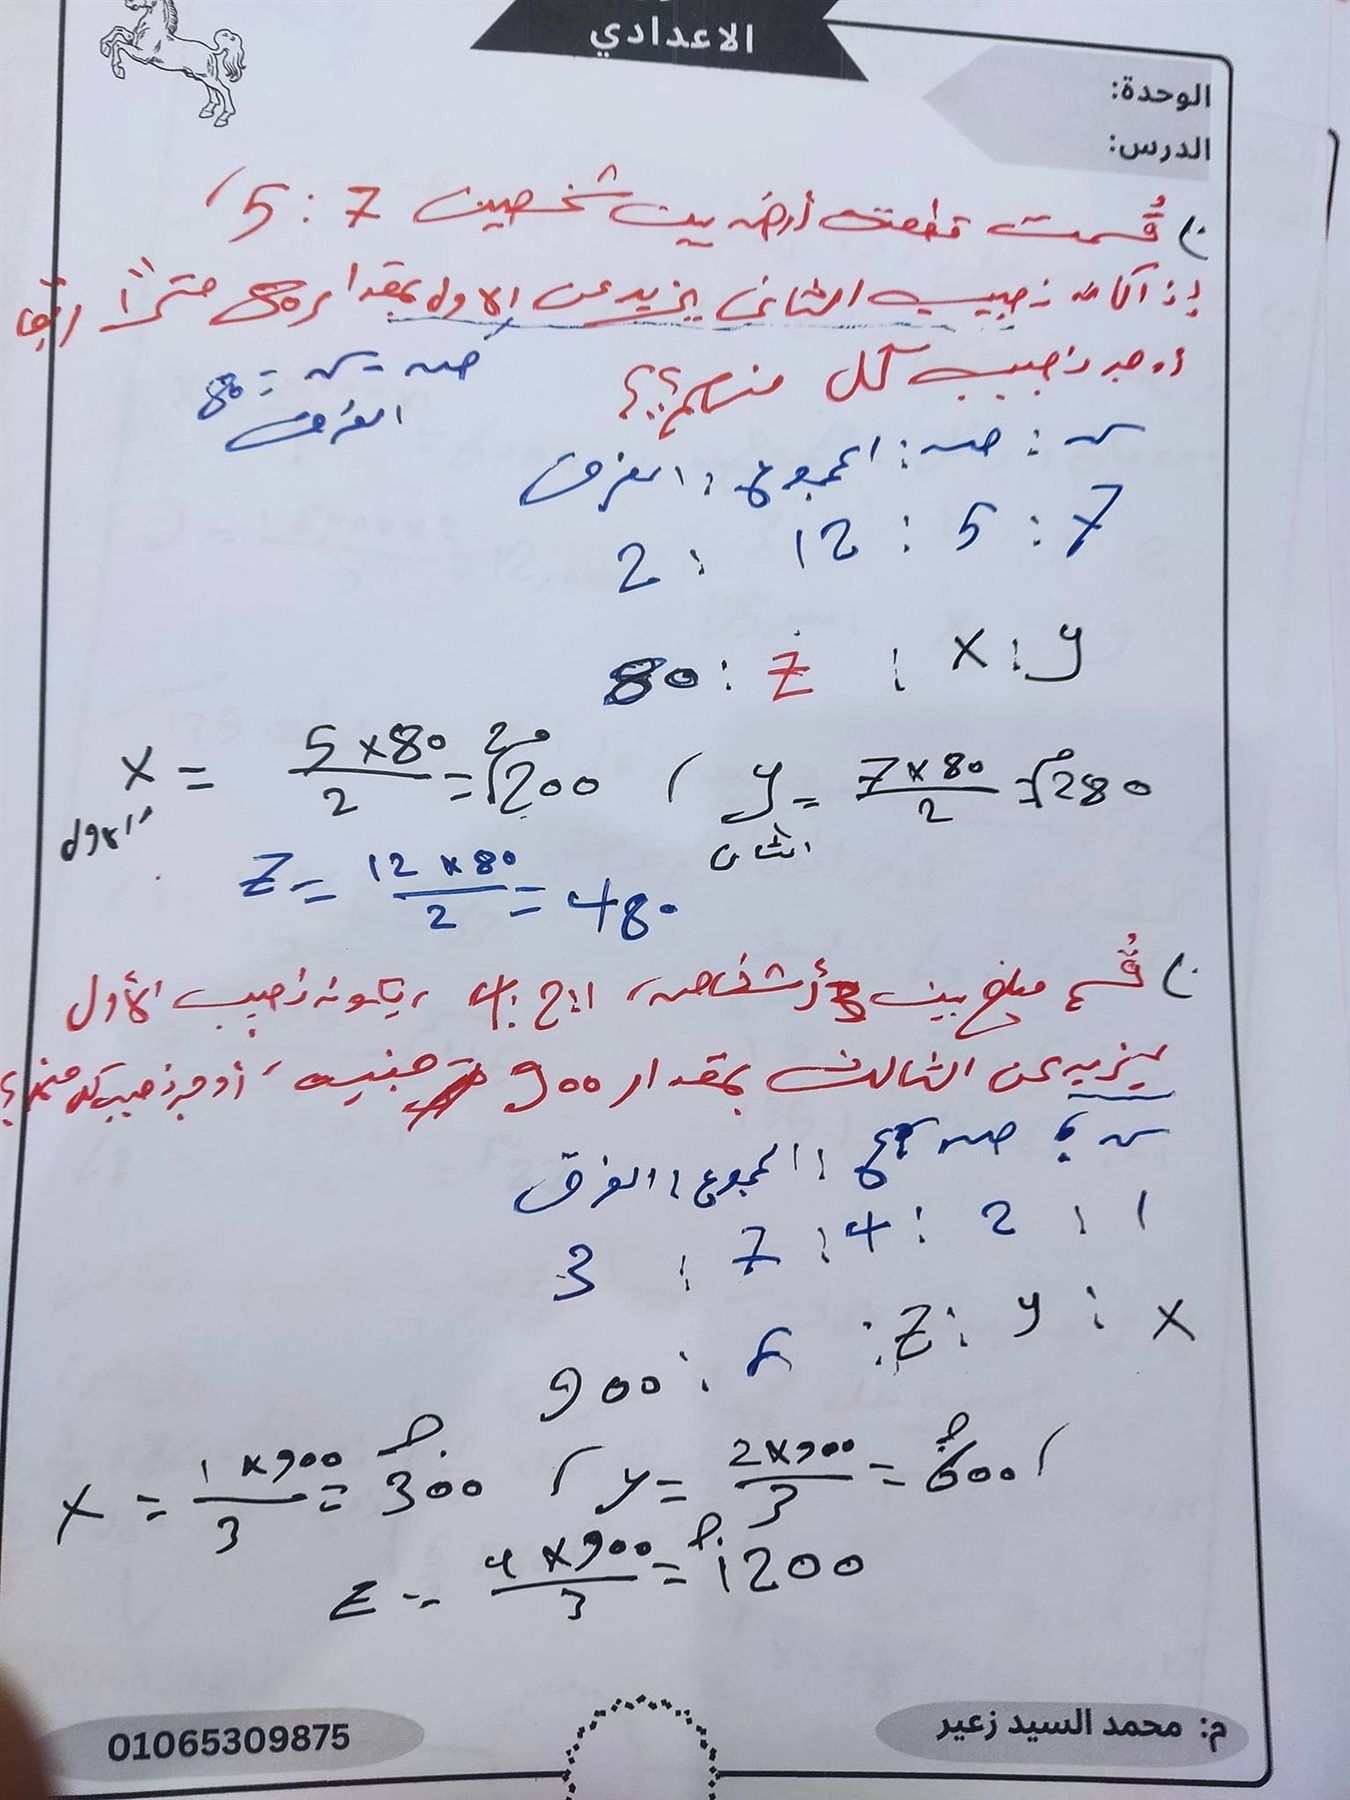 الاعدادي
الوحدة:
الدرس:
قُسمت قطعة أرض بين شخصين 7 : 5 ،
إذا كان نصيب الثاني يزيد عن الاول بمقدار 80 متراً
أوجد نصيب كل منهم؟؟
ص - س = 80
الفرق
س : ص : المجموع : الفرق
7 : 5 : 12 : 2
y : x : z : 80
x = 5 x 80 / 2 = 200 ، y = 7 x 80 / 2 = 280
الاول
الثاني
z = 12 x 80 / 2 = 480
قُسم مبلغ بين 3 أشخاص، 4 :
يزيد عن الثالث بمقدار 900 جنيه، أوجد نصيب كل منهم؟
س : ص : ع : المجموع : الفرق
1 : 2 : 4 : 7 : 3
x : y : z : : 900
x = 1 x 900 / 3 = 300 ، y = 2 x 900 / 3 = 600 ،
z = 4 x 900 / 3 = 1200
م: محمد السيد زعير
01065309875